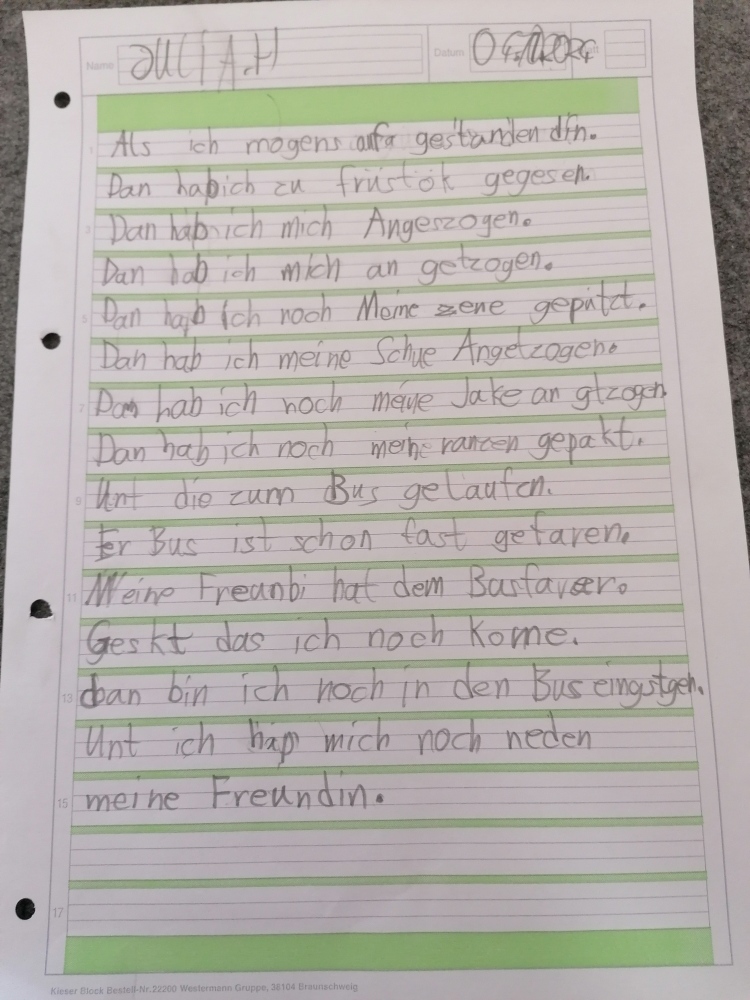 Name JULIA.H Datum
1 Als ich mogens aufa gestanden din.
Dan habich zu früstök gegesen.
3 Dan hab ich mich Angeszogen.
Dan hab ich mich an getzogen.
5 Dan hab ich noch Meine zene geputzt.
Dan hab ich meine Schue Angetzogen.
7 Dan hab ich noch meine Jake an gtzogen
Dan hab ich noch meine ranzen gepakt.
9 Unt die zum Bus gelaufen.
Er Bus ist schon fast gefaren.
11 Meine Freunbi hat dem Busfarer.
Geskt das ich noch Kome.
13 dan bin ich noch in den Bus eingstgen.
Unt ich hap mich noch neden
15 meine Freundin.
17
Kieser Block Bestell-Nr.22200 Westermann Gruppe, 38104 Braunschweig